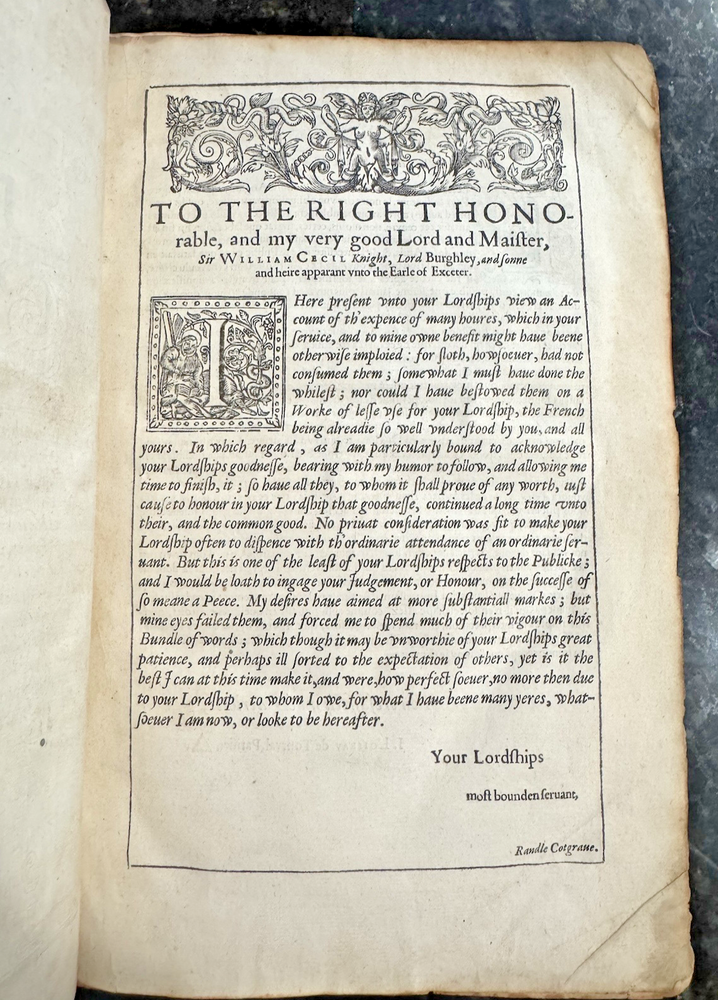 TO THE RIGHT HONO-
rable, and my very good Lord and Maiſter,
Sir WILLIAM CECIL Knight, Lord Burghley, and ſonne
and heire apparant vnto the Earle of Exceter.
I Here preſent vnto your Lordſhips view an Ac-
count of th'expence of many houres, which in your
ſeruice, and to mine owne benefit might haue beene
otherwiſe imploied : for ſloth, howſoeuer, had not
conſumed them ; ſomewhat I muſt haue done the
whileſt ; nor could I haue beſtowed them on a
Worke of leſſe vſe for your Lordſhip, the French
being alreadie ſo well vnderſtood by you, and all
yours. In which regard, as I am particularly bound to acknowledge
your Lordſhips goodneſſe, bearing with my humor to follow, and allowing me
time to finiſh, it ; ſo haue all they, to whom it ſhall proue of any worth, iuſt
cauſe to honour in your Lordſhip that goodneſſe, continued a long time vnto
their, and the common good. No priuat conſideration was fit to make your
Lordſhip often to diſpence with th'ordinarie attendance of an ordinarie ſer-
uant. But this is one of the leaſt of your Lordſhips reſpects to the Publicke ;
and I would be loath to ingage your Judgement, or Honour, on the ſucceſſe of
ſo meane a Peece. My deſires haue aimed at more ſubſtantiall markes ; but
mine eyes failed them, and forced me to ſpend much of their vigour on this
Bundle of words ; which though it may be vnworthie of your Lordſhips great
patience, and perhaps ill ſorted to the expectation of others, yet is it the
beſt J can at this time make it, and were, how perfect ſoeuer, no more then due
to your Lordſhip, to whom I owe, for what I haue beene many yeres, what-
ſoeuer I am now, or looke to be hereafter.
Your Lordſhips
moſt bounden ſeruant,
Randle Cotgraue.